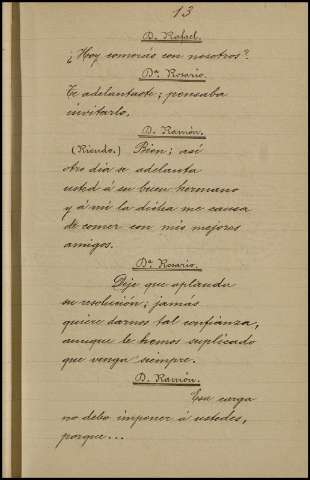 13
D. Rafael.
¿Hoy comerás con nosotros?
Dª Rosario.
Te adelantaste; pensaba
invitarlo.
D. Ramón.
(Riendo.) Bien; así
otro dia se adelanta
usted á su buen hermano
y á mi la dicha me causa
de comer con mis mejores
amigos.
Dª Rosario.
Deje que aplauda
su resolución; jamás
quiere darnos tal confianza,
aunque le hemos suplicado
que venga siempre.
D. Ramón.
Esa carga
no debo imponer á ustedes,
porque...